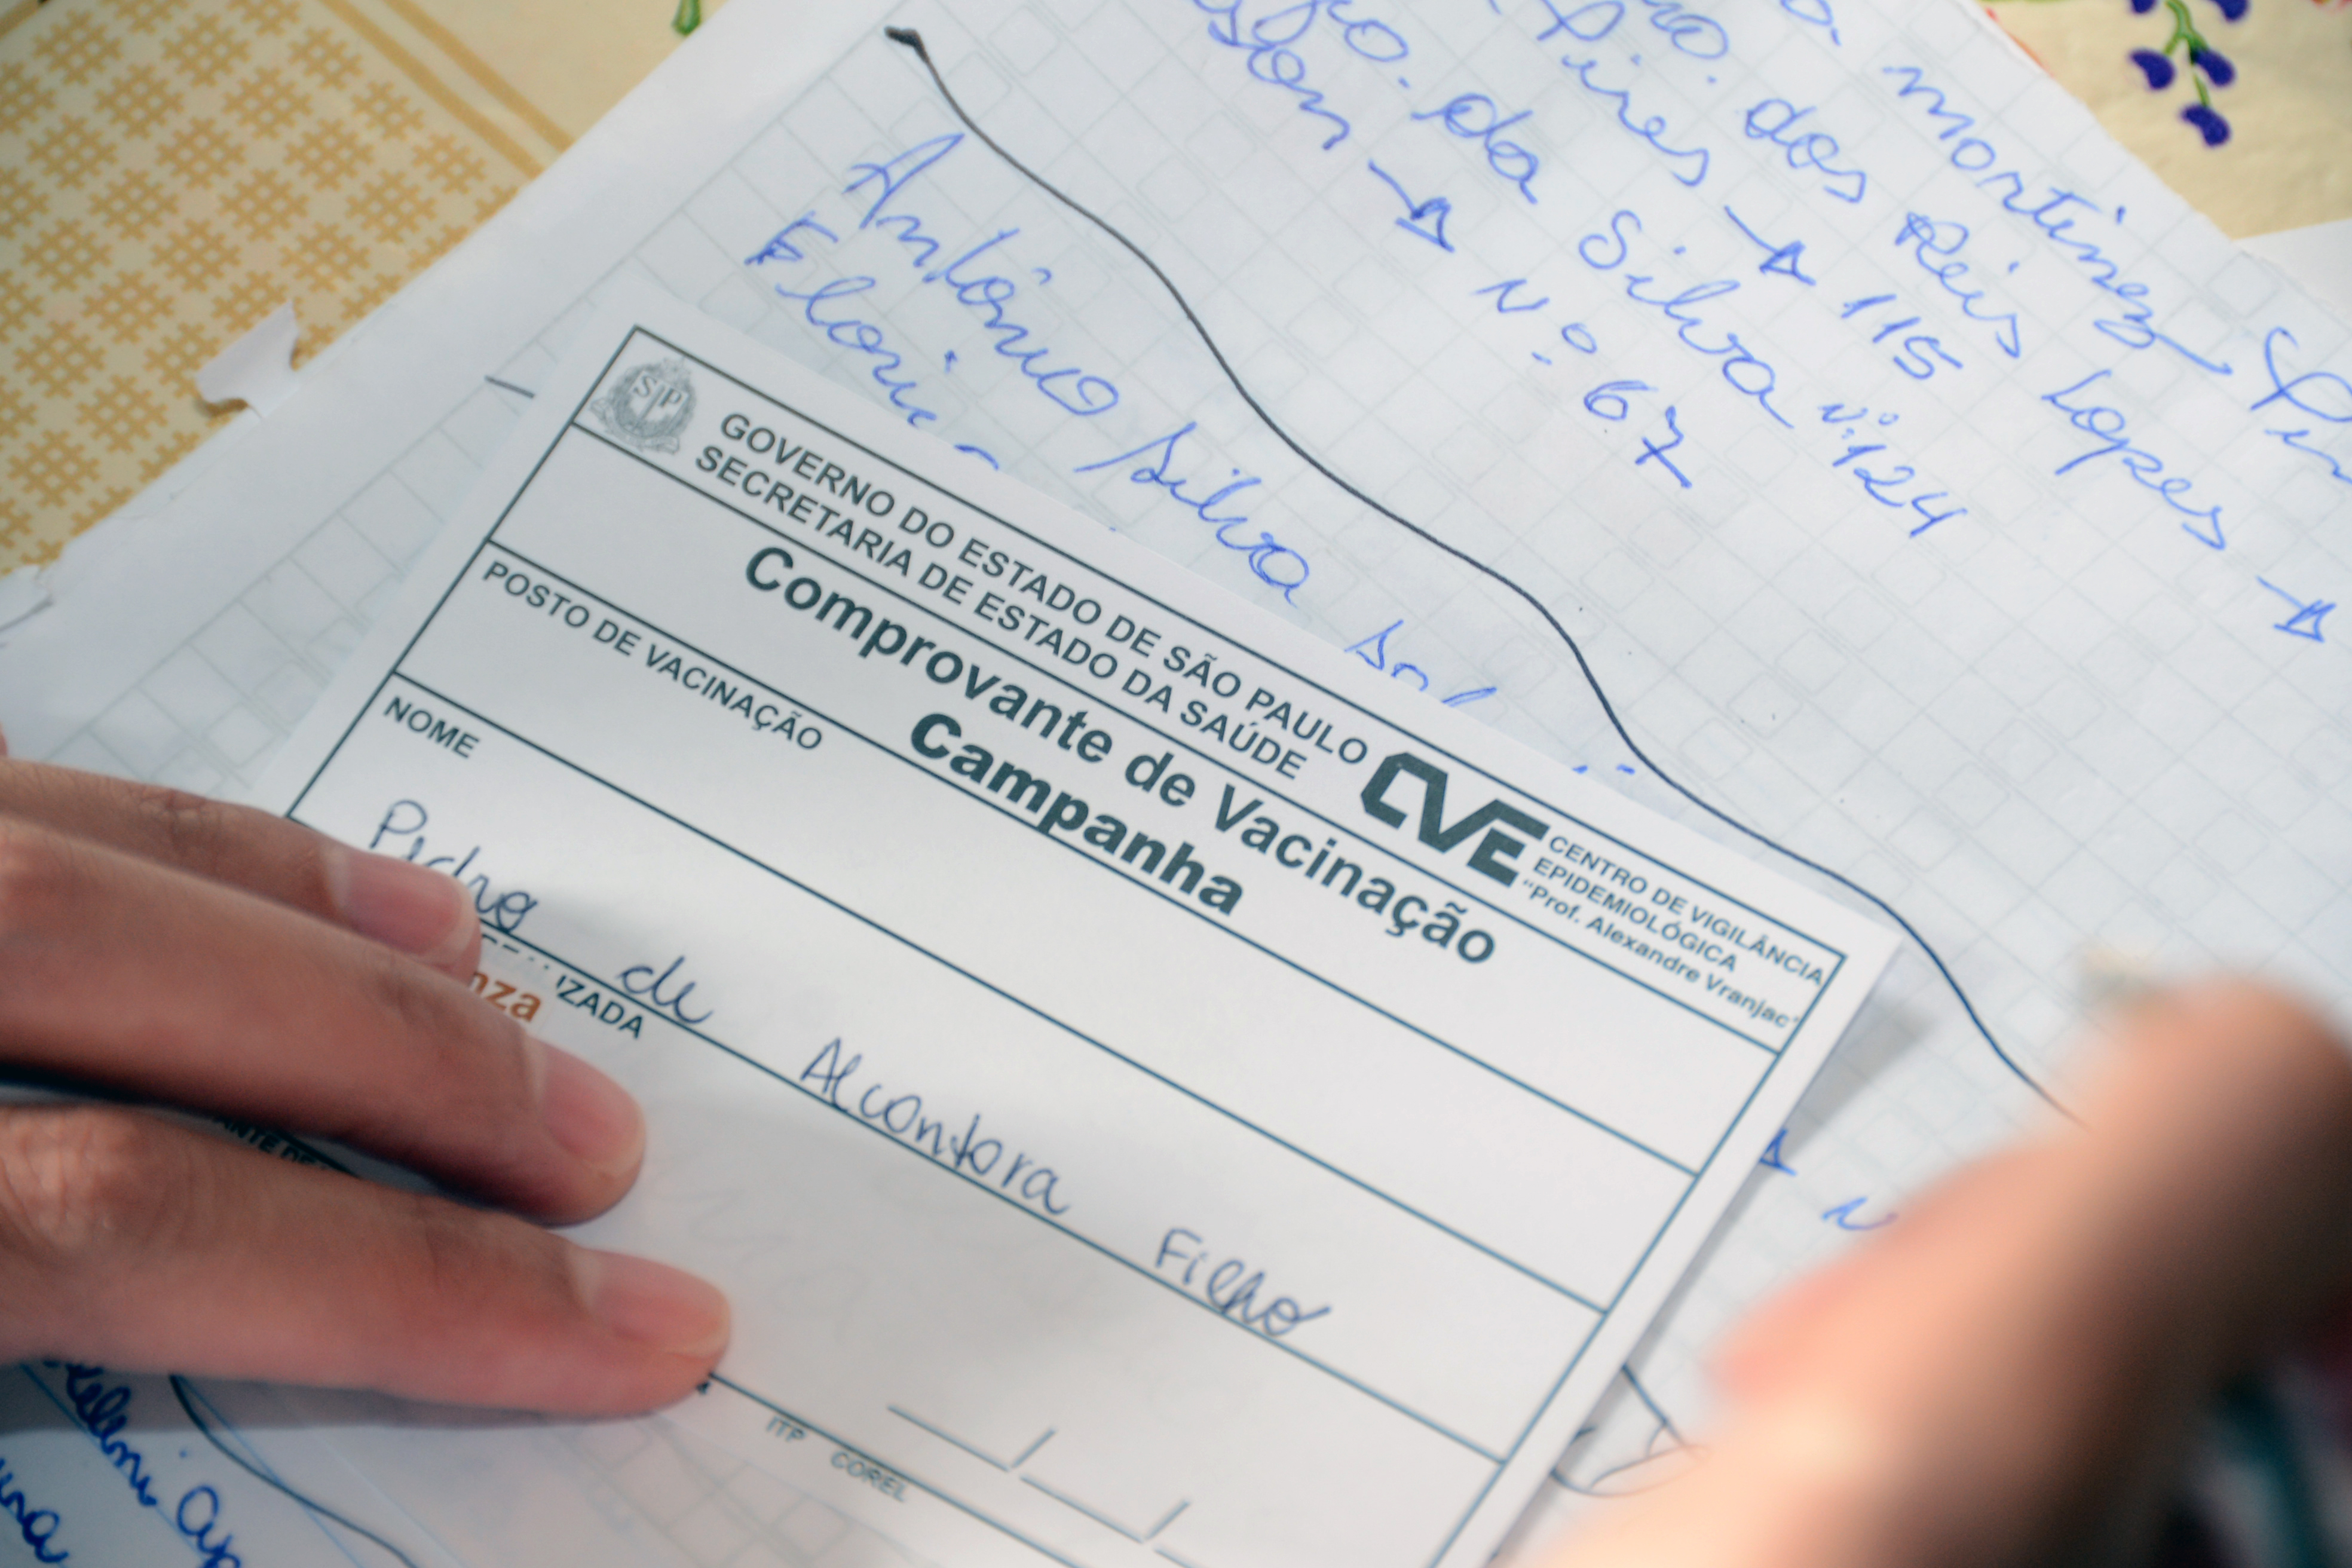 mortinez
dos Reis Lopes →
Pires → 115
da Silva Nº 124
son → Nº 67
Antônio Silva
GOVERNO DO ESTADO DE SÃO PAULO
SECRETARIA DE ESTADO DA SAÚDE
CVE CENTRO DE VIGILÂNCIA
EPIDEMIOLÓGICA
"Prof. Alexandre Vranjac"
Comprovante de Vacinação
Campanha
POSTO DE VACINAÇÃO
NOME
Pedro de Alcantara Filho
IZADA
nza
ITP COREL